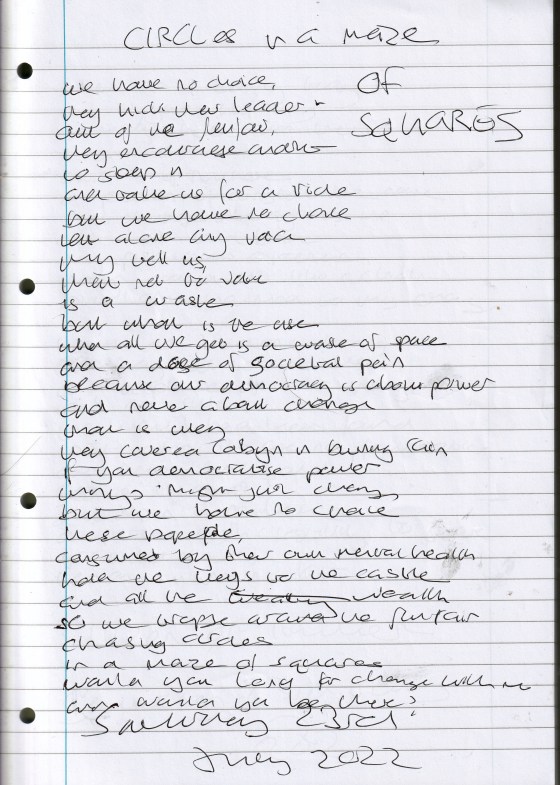 CIRCLES in a maze
OF
SQUARES
we have no choice,
they their leader
out of the
they encourage
to sleep in
and take us for a ride
but we have no choice
let alone any
they tell us,
that not to vote
is a waste
but what is the use
when all we get is a waste of space
and a dose of societal pain
because our democracy is about power
and never about change
that is why
they in burning rain
if you democratise power
things might just change
but we have no choice
these people,
consumed by their own mental health
hold the keys to the castle
and all the wealth
so we around the
chasing circles
in a maze of squares
wanna you for change with me
and wanna you
Saturday 23rd
July 2022